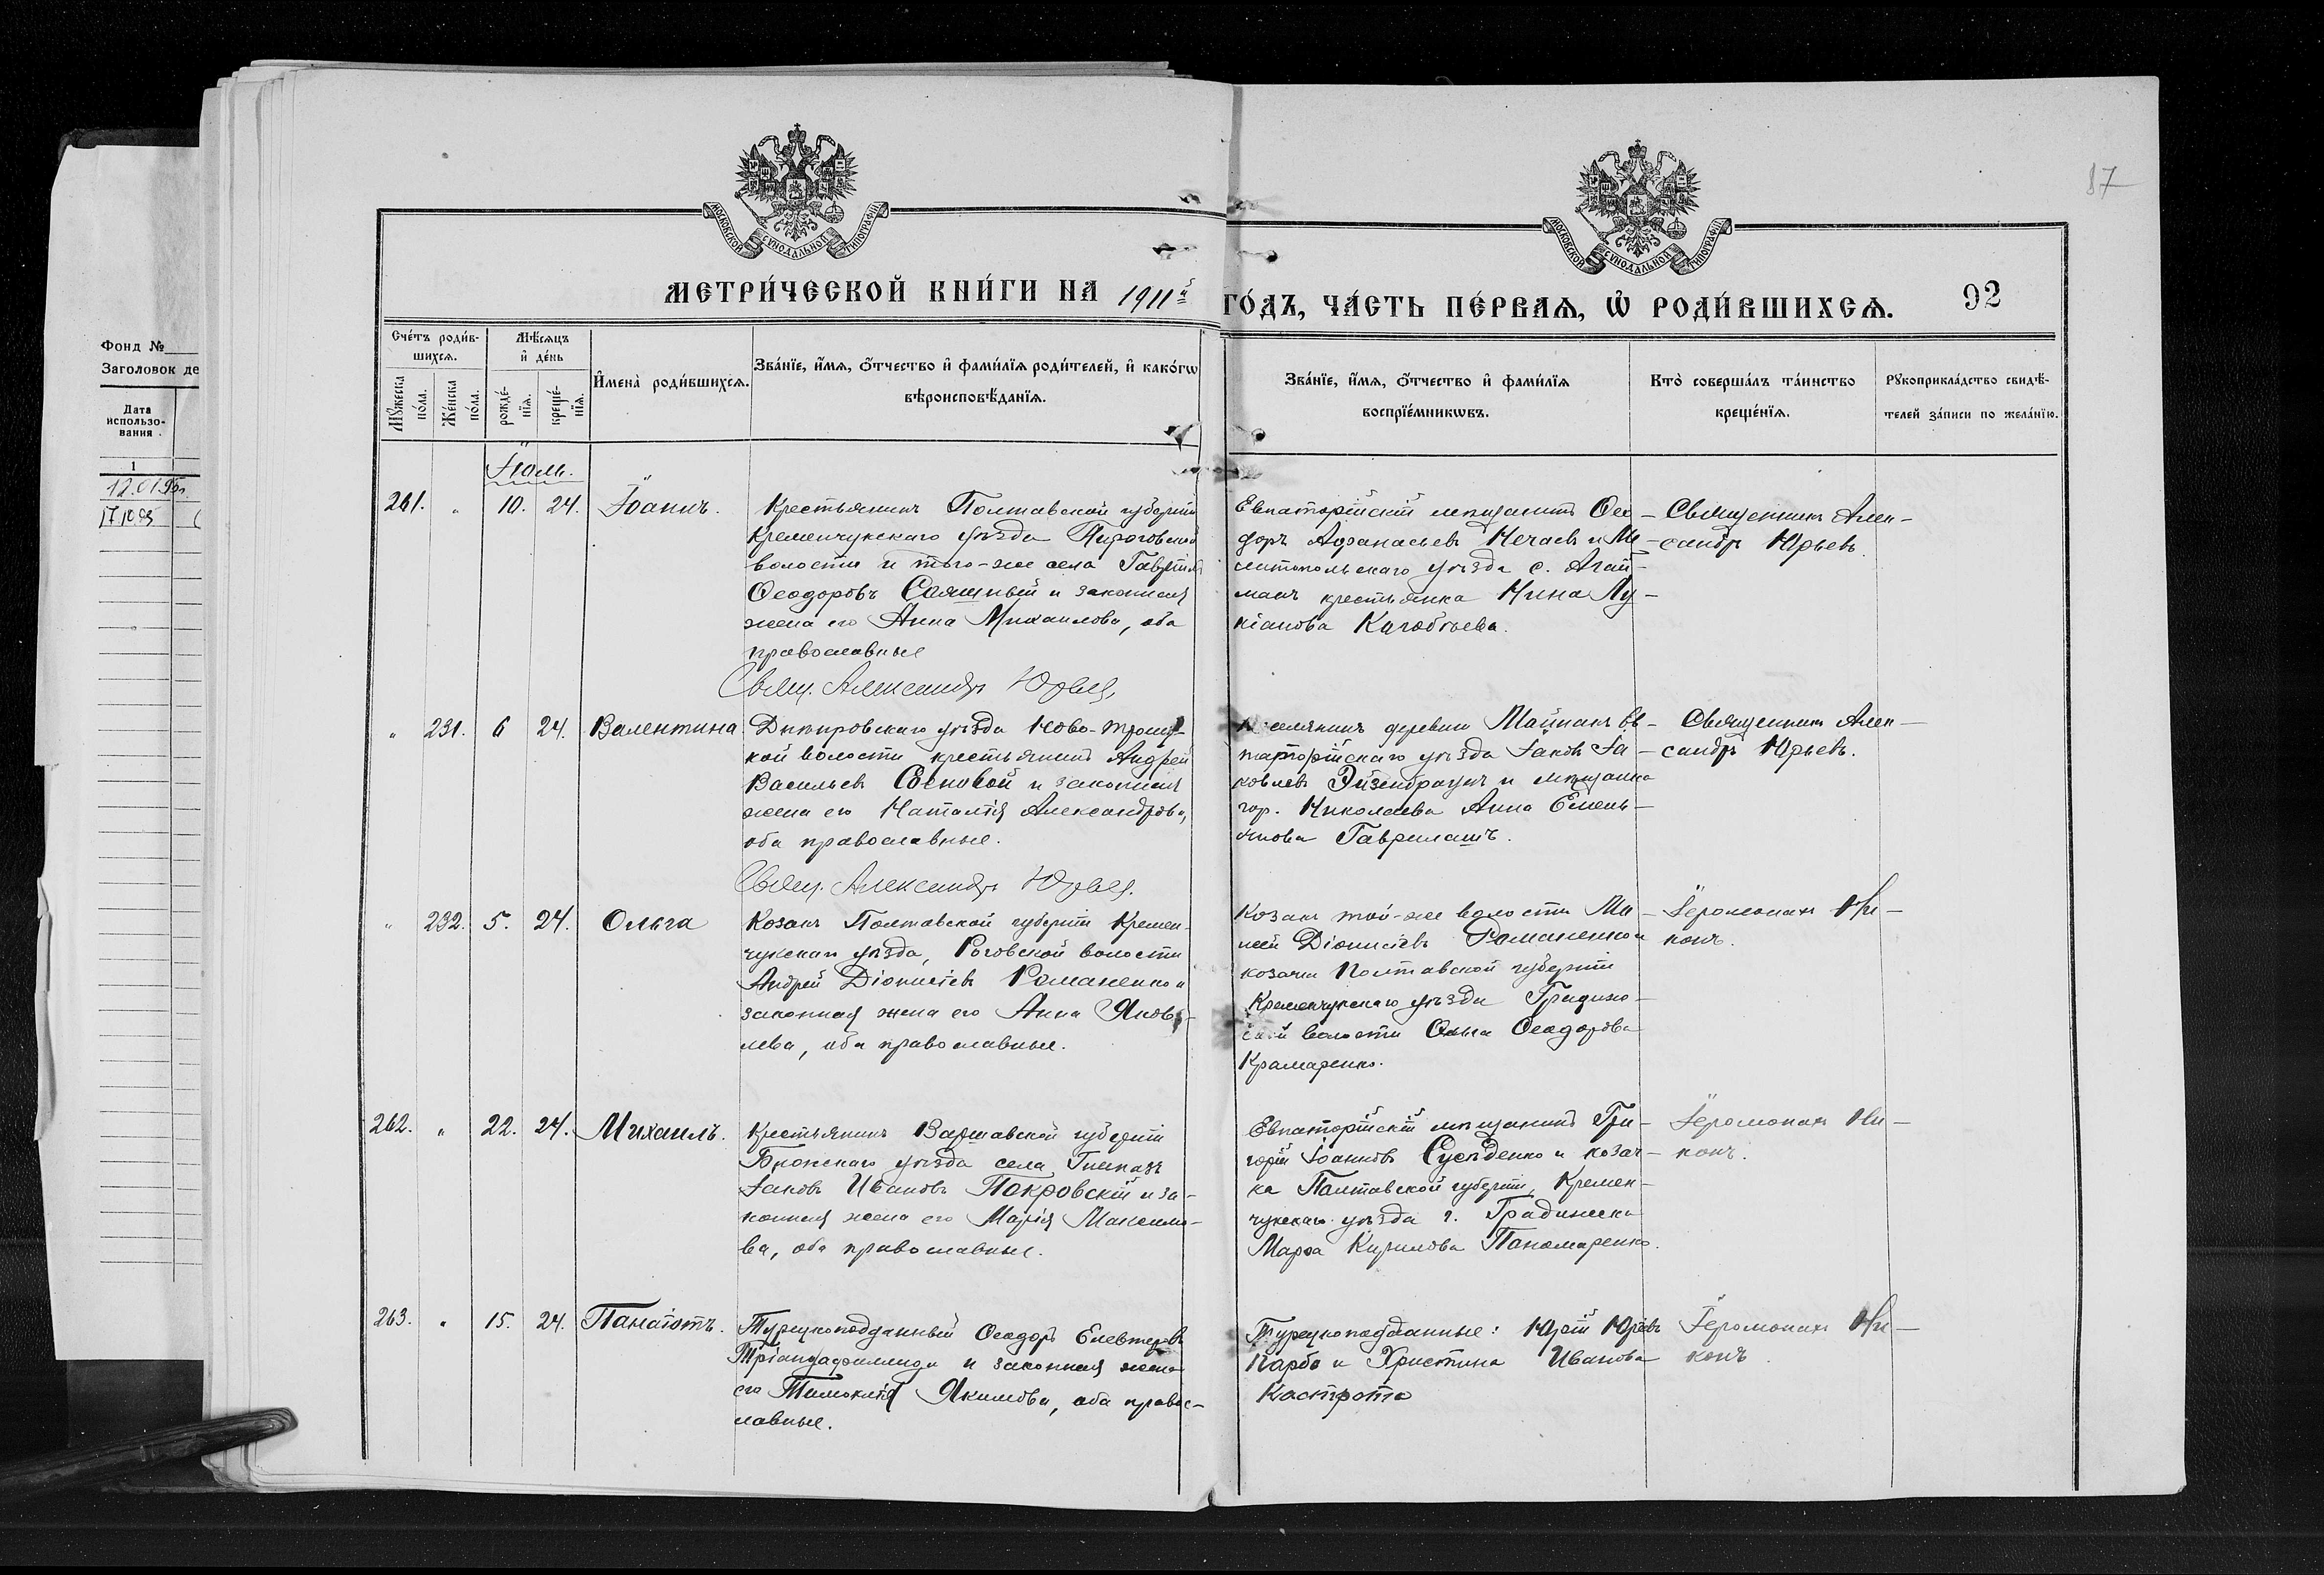 87
МОСКОВСКОЙ СѴНОДАЛЬНОЙ ТИПОГРАФІИ
МОСКОВСКОЙ СѴНОДАЛЬНОЙ ТИПОГРАФІИ
МЕТРИ́ЧЕСКОЙ КНИ́ГИ НА 1911й ГО́ДЪ, ЧА́СТЬ ПЕ́РВАѦ, Ѡ РОДИ́ВШИХСѦ. 92
Фонд №
Заголовок де
Дата
использо-
вания
1
12.01.95г.
Сче́тъ роди́в-
шихсѧ.
Мꙋ́жеска
по́ла.
Же́нска
по́ла.
Мѣ́сѧцъ
и҆ де́нь
рожде́-
нїѧ.
креще́-
нїѧ.
И҆мена̀ роди́вшихсѧ.
Зва́нїе, и҆́мѧ, ѻ҆́тчество и҆ фами́лїѧ роди́телей, и҆ како́гѡ
вѣроисповѣ́данїѧ.
Зва́нїе, и҆́мѧ, ѻ҆́тчество и҆ фами́лїѧ
воспрїе́мникѡвъ.
Кто̀ соверша́лъ та́инство
креще́нїѧ.
Рꙋкоприкла́дство свидѣ́-
телей за́писи по жела́нїю.
Іюль.
261. " 10. 24. Іоаннъ.
Крестьянинъ Полтавской губерніи
Кременчукскаго уѣзда Пироговской
волости и того-же села Гавріилъ
Ѳеодоровъ и законная
жена его Анна Михаилова, оба
православные
Свящ. Александръ Юрьевъ
Евпаторійскій мѣщанинъ Ѳео-
доръ Аѳанасьевъ Нечаевъ и Ме-
литопольскаго уѣзда с. Агай-
манъ крестьянка Нина Лу-
кіанова
Священникъ Алек-
сандръ Юрьевъ.
" 231. 6 24. Валентина
Днѣпровскаго уѣзда Ново-Троиц-
кой волости крестьянинъ Андрей
Васильевъ Сосновой и законная
жена его Наталія Александрова,
оба православные.
Свящ. Александръ Юрьевъ.
Поселянинъ деревни Майнакъ Ев-
паторійскаго уѣзда Іаковъ Іа-
ковлевъ Эйзенбраунъ и мѣщанка
гор. Николаева Анна Емель-
янова Гаврилашъ.
Священникъ Алек-
сандръ Юрьевъ.
" 232. 5. 24. Ольга
Козакъ Полтавской губерніи Кремен-
чукскаго уѣзда, Роговской волости
Андрей Діонисіевъ Романенко и
законная жена его Анна Яков-
лева, оба православные.
Козакъ той-же волости Ми-
ней Діонисіевъ Романенко и
козачка Полтавской губерніи
Кременчукскаго уѣзда Градижс-
ской волости Ольга Ѳеодорова
Крамаренко.
Іеромонахъ Ни-
конъ.
262. " 22. 24. Михаилъ.
Крестьянинъ Варшавской губерніи
Блонскаго уѣзда села
Іаковъ Ивановъ Покровскій и за-
конная жена его Марія Максимо-
ва, оба православные.
Евпаторійскій мѣщанинъ Гри-
горій Іоанновъ Суспденко и козач-
ка Полтавской губерніи, Кремен-
чукскаго уѣзда г. Градижска
Марѳа Кирилова Пономаренко.
Іеромонахъ Ни-
конъ.
263. " 15. 24. Панаіотъ.
Турецкоподданный Ѳеодоръ Елевтеровъ
Тріандафиллиди и законная жена
его Тимоклія Якимова, оба правос-
лавные.
Турецкоподданные: Юрій Юрьевъ
Карбо и Христина Иванова
Кастрота
Іеромонахъ Ни-
конъ.